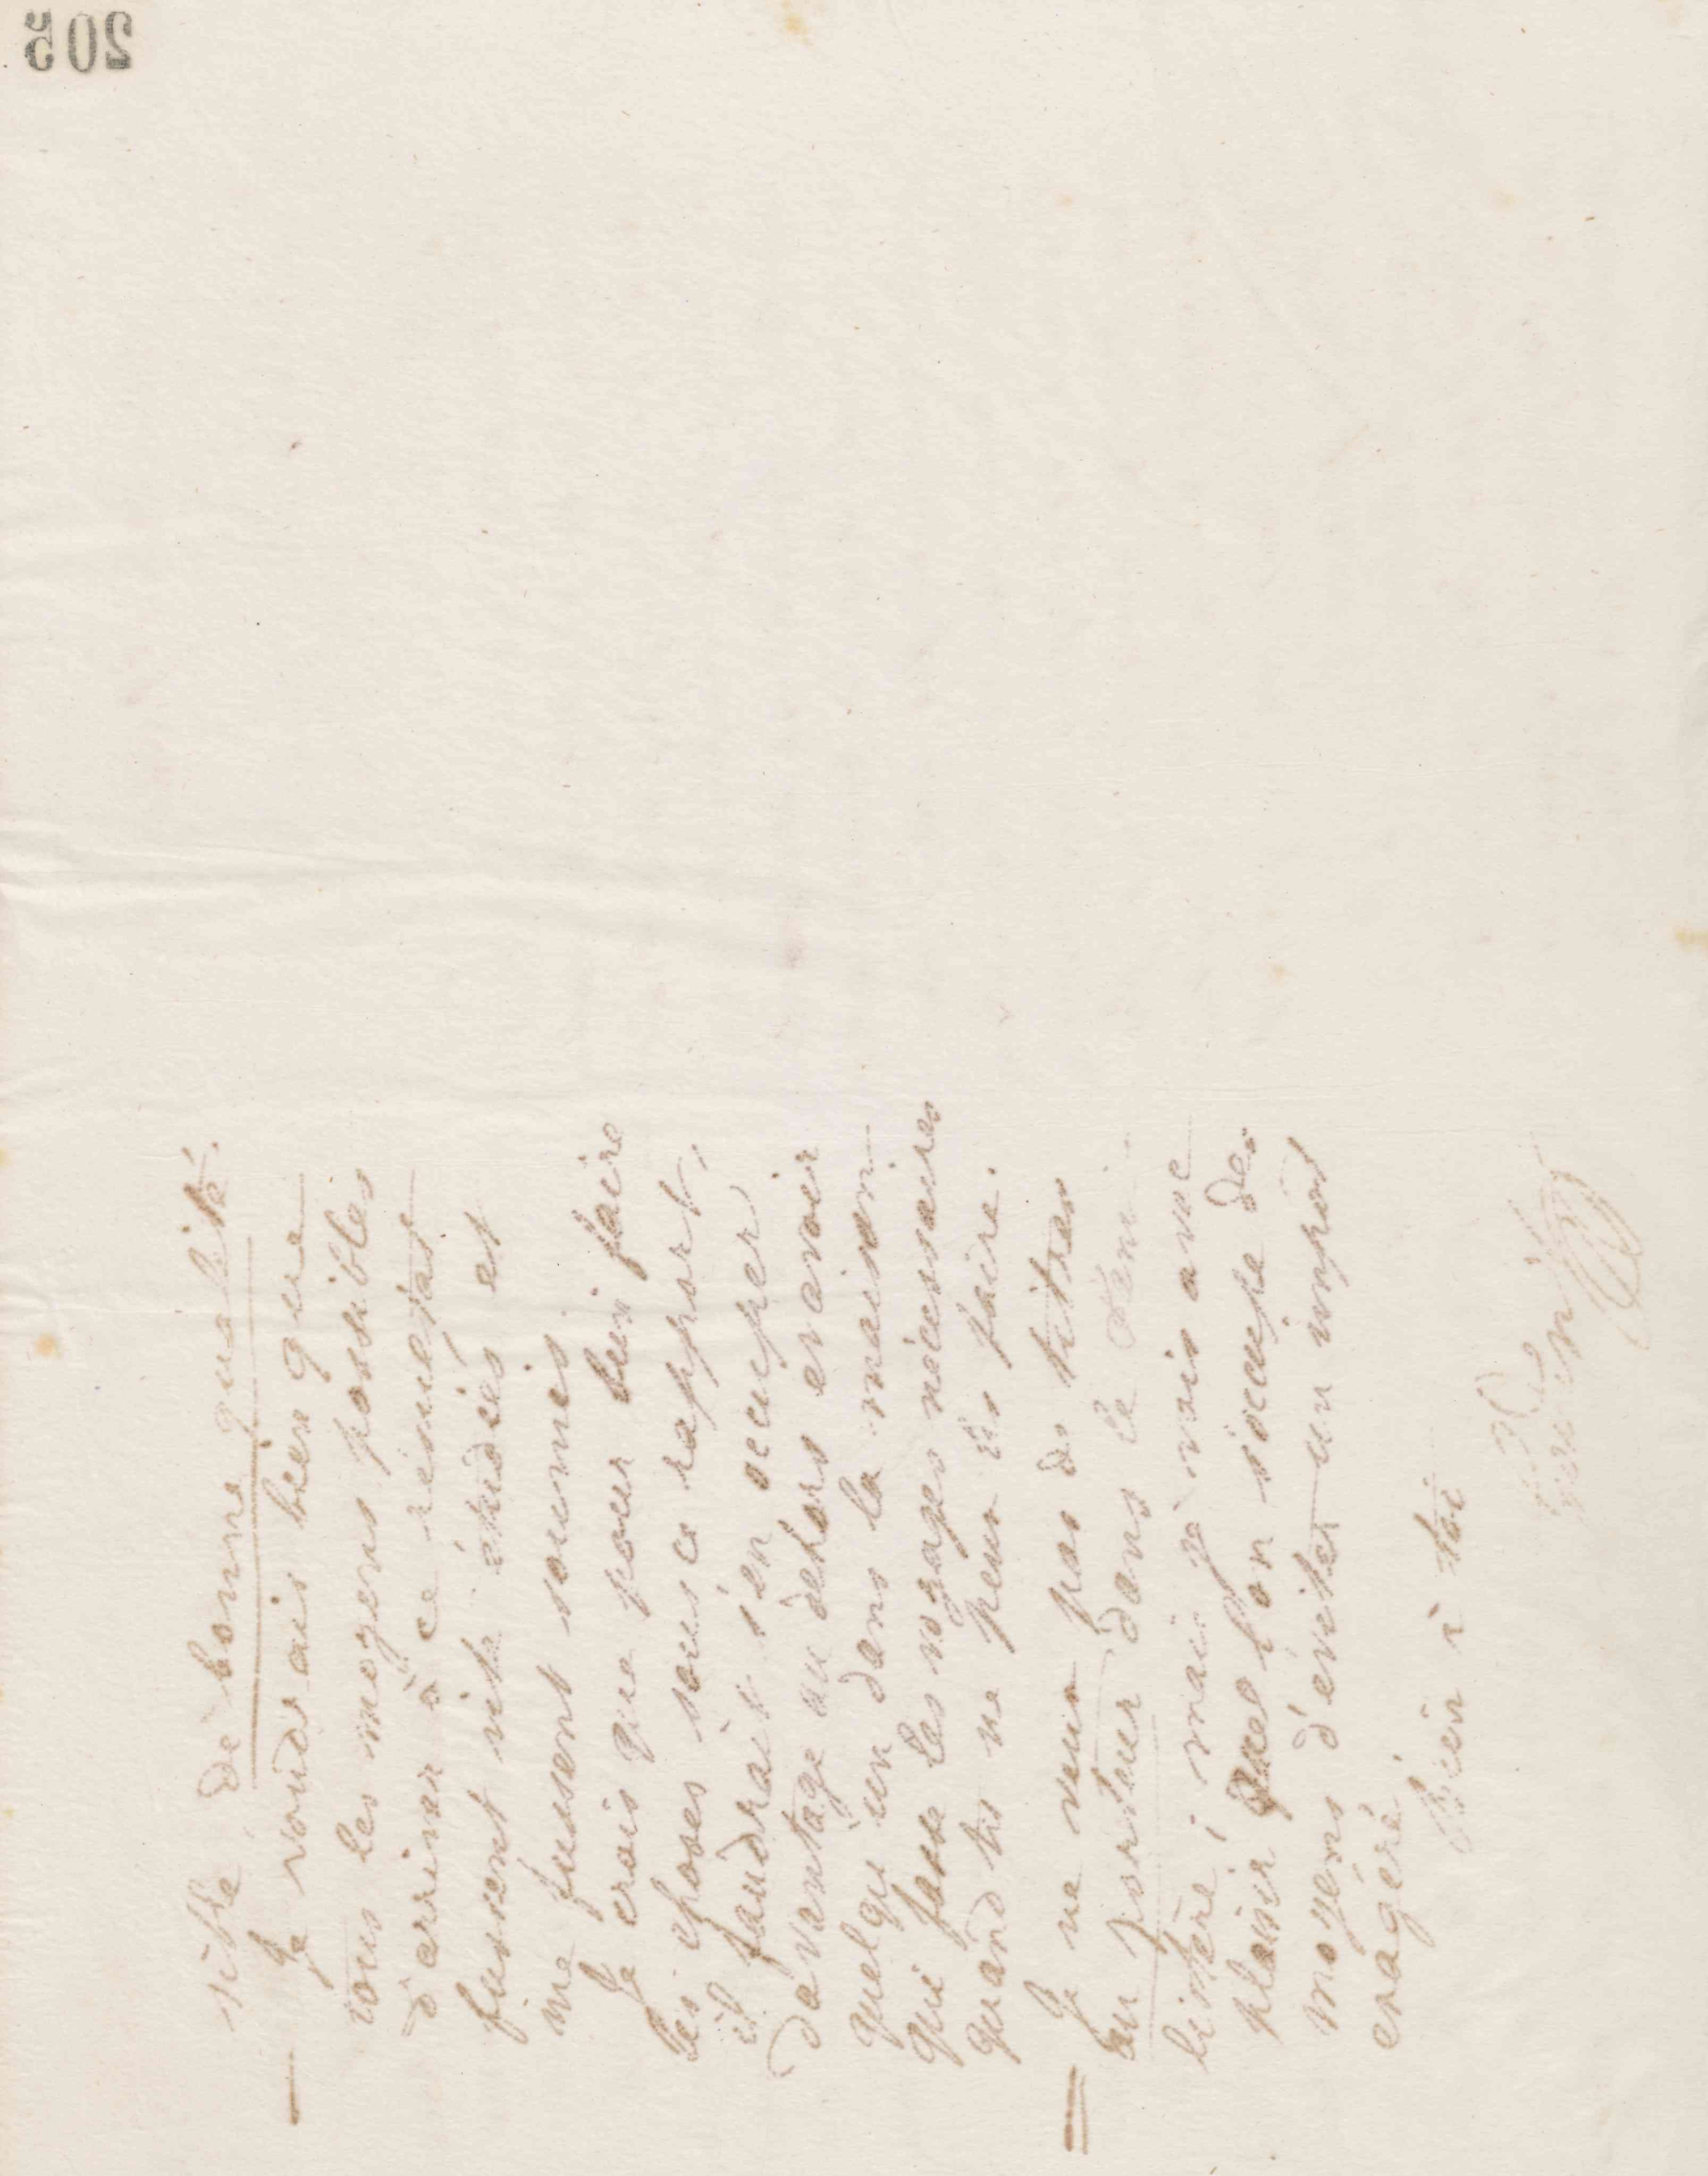 205
vite de bonne qualité.
— Je voudrais bien que
tous les moyens possibles
d'arriver à ce résultat
fussent vite étudiés et
me fussent soumis.
Je crois que pour bien faire
les choses sous ce rapport,
il faudrait s'en occuper
davantage au dehors et avoir
quelqu'un dans la maison
qui fasse les voyages nécessaires
quand tu ne peux les faire.
= Je ne veux pas de titres
au porteur dans le
; mais je vois avec
plaisir que l'on s'occupe des
moyens d'éviter un impôt
exagéré.
Bien à toi
Godin